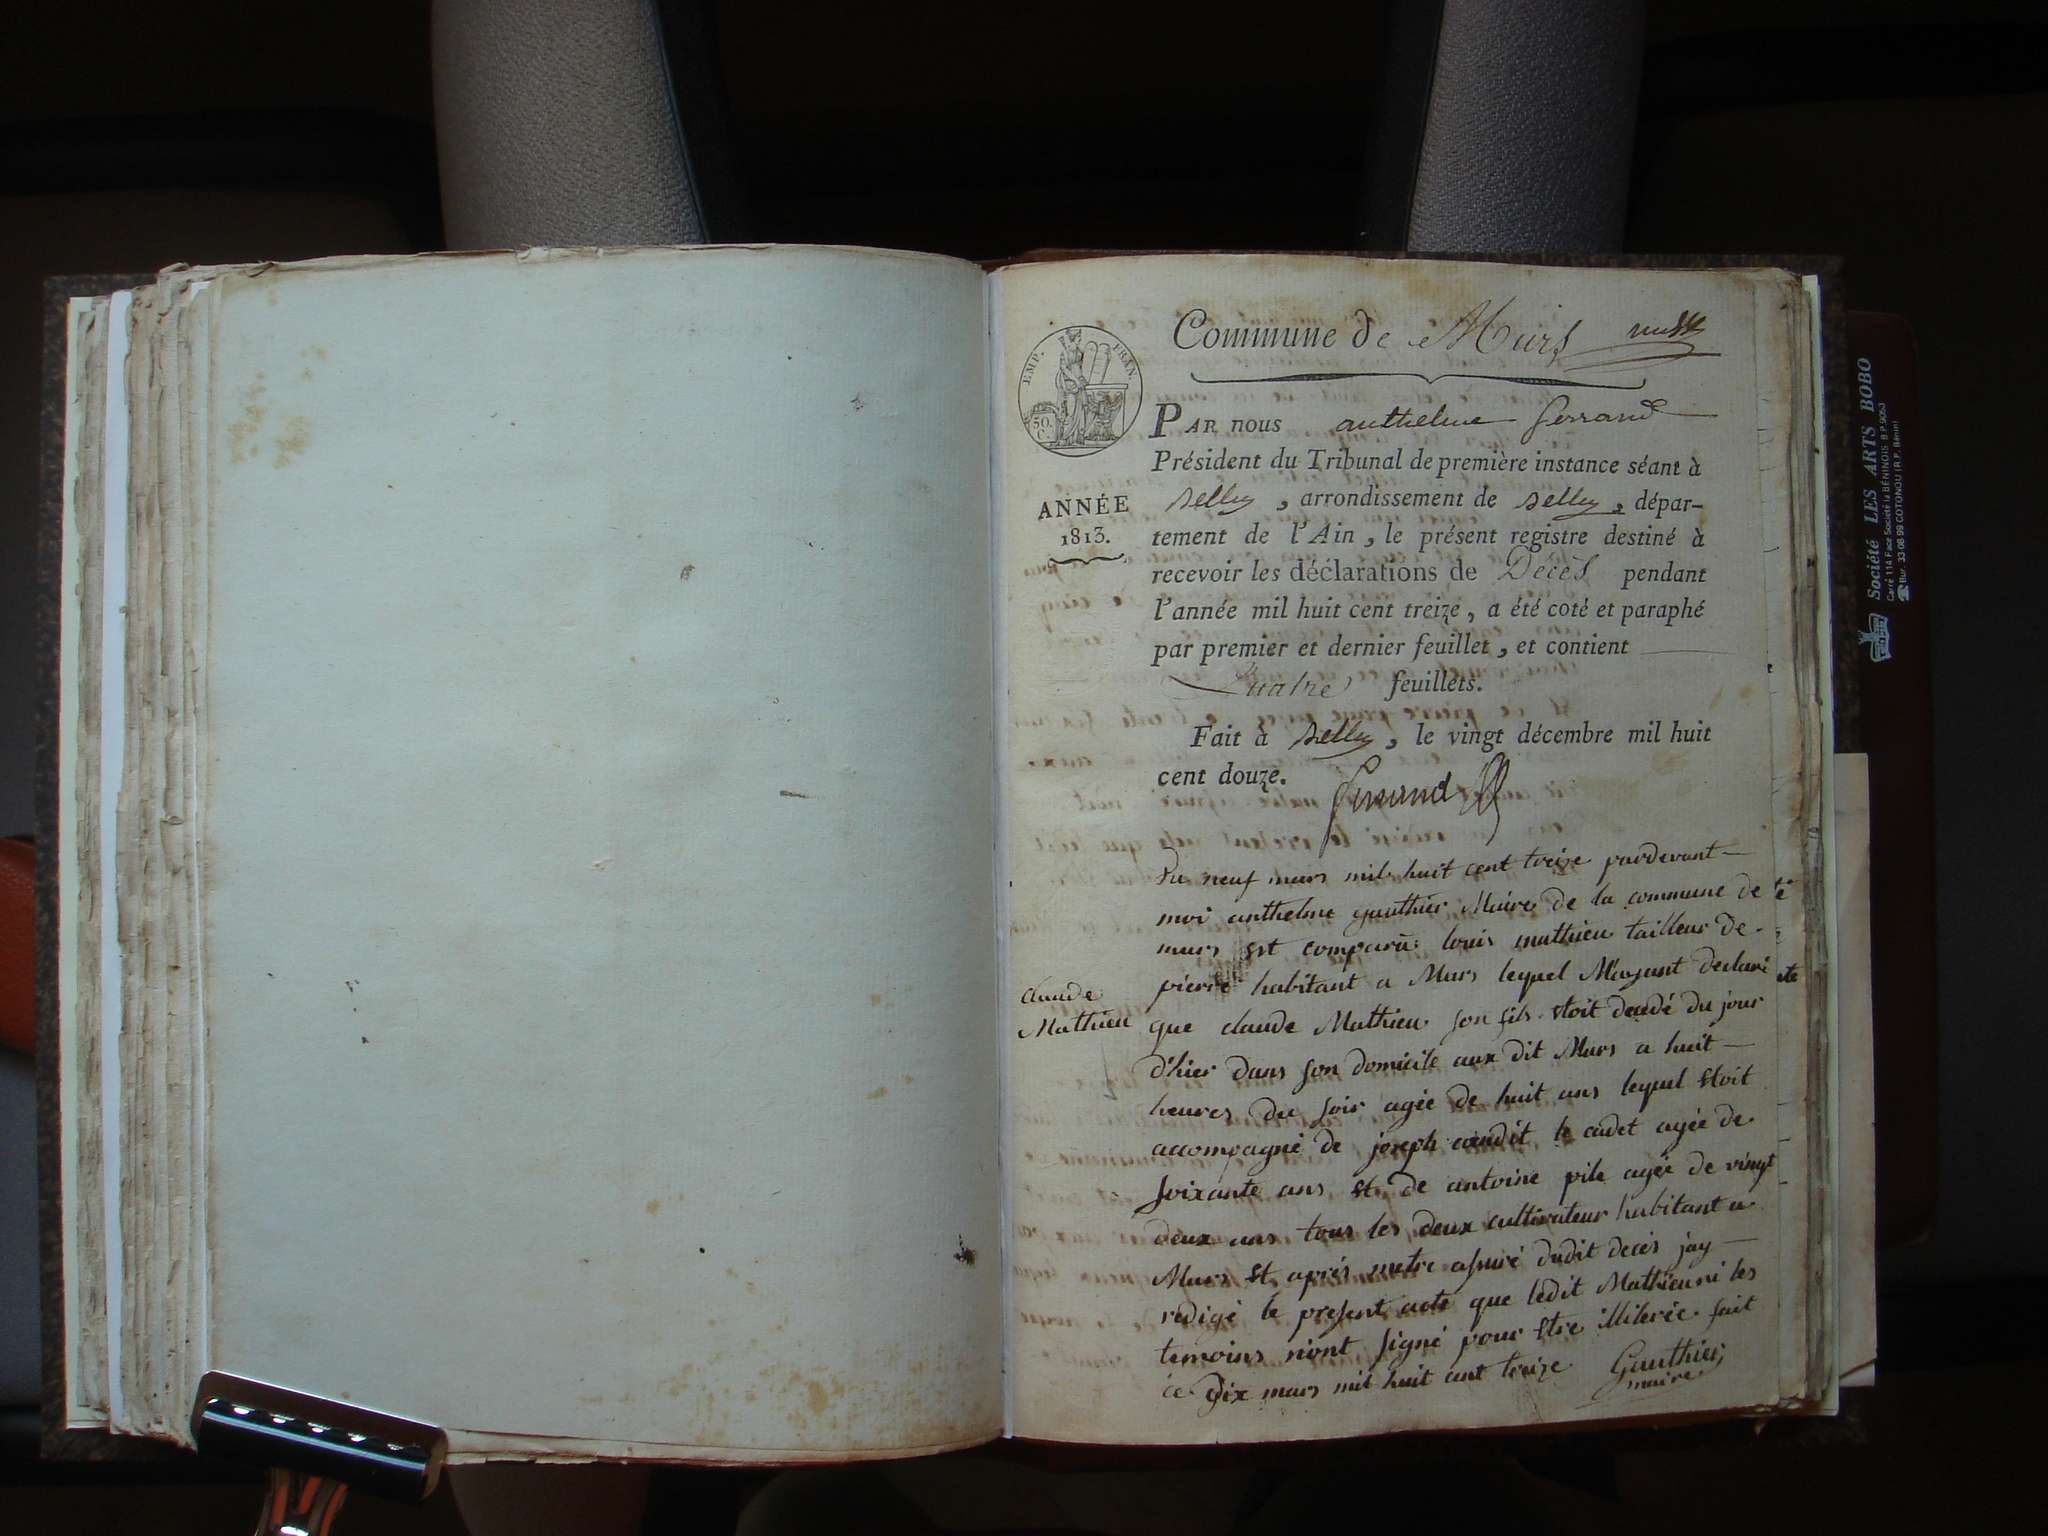 Commune de Murs
EMP. FRAN.
50.
C.
PAR nous anthelme ferrand
Président du Tribunal de première instance séant à
Belley, arrondissement de Belley, dépar-
tement de l'Ain, le présent registre destiné à
recevoir les déclarations de Décès pendant
l'année mil huit cent treize, a été coté et paraphé
par premier et dernier feuillet, et contient
quatre feuillets.
Fait à Belley, le vingt décembre mil huit
cent douze.
ferrand
ANNÉE
1813.
Du neuf mars mil huit cent treize pardevant
moi anthelme gauthier Maire de la commune de
murs est comparu louis mathieu tailleur de
pierre habitant a Murs lequel M'ayant declaré
que claude Mathieu son fils etoit decedé du jour
d'hier dans son domicile aux dit Murs a huit
heures du soir agée de huit ans lequel etoit
accompagné de joseph le cadet agée de
soixante ans et de antoine pile agée de vingt
deux ans tous les deux cultivateur habitant a
Murs et après metre assuré dudit decés jay
redigé le present acte que ledit Mathieu ni les
temoins niont signé pour etre illiterée fait
ce dix mars mil huit cent treize Gauthier
maire
claude
Mathieu
Société LES ARTS BOBO
Carré 114 Face Société la BÉNINOIS B.P. 9053
Bur. 33 08 99 COTONOU (R.P. Bénin)